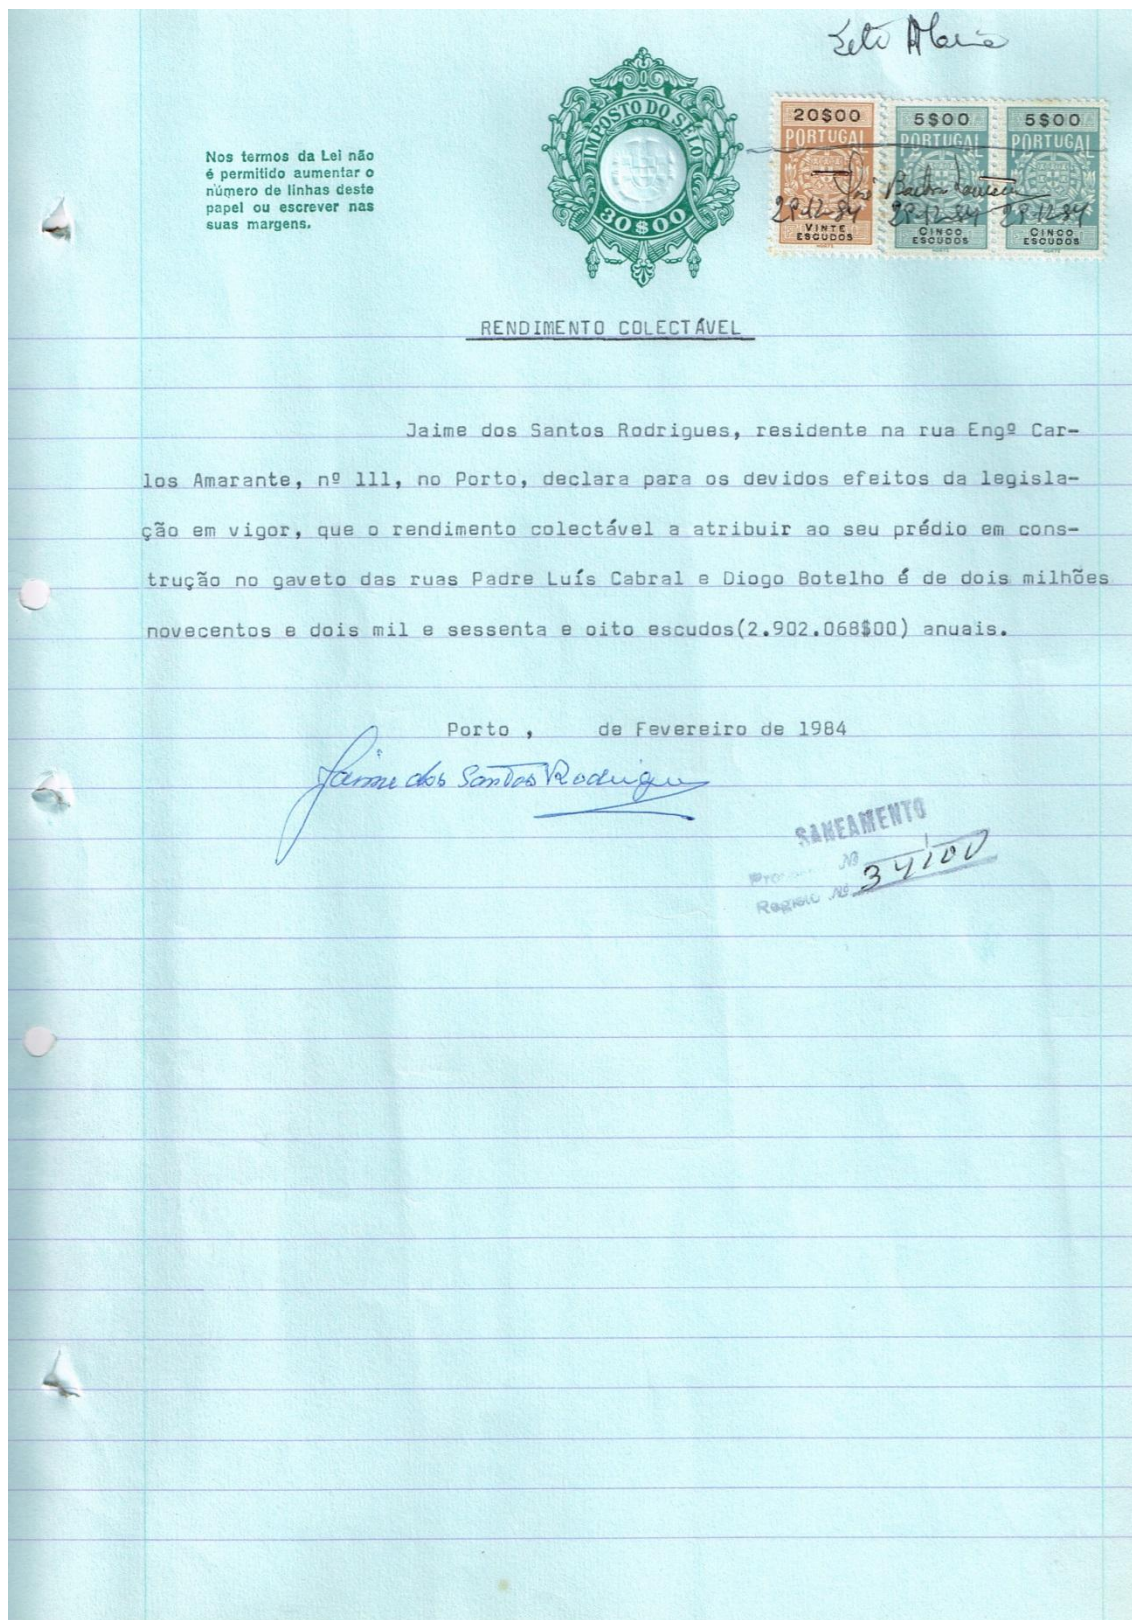 Nos termos da Lei não
é permitido aumentar o
número de linhas deste
papel ou escrever nas
suas margens.
IMPOSTO DO SELO
30$00
20$00
PORTUGAL
VINTE
ESCUDOS
5$00
PORTUGAL
CINCO
ESCUDOS
5$00
PORTUGAL
CINCO
ESCUDOS
28-12-84 28-12-84 28-12-84
RENDIMENTO COLECTÁVEL
Jaime dos Santos Rodrigues, residente na rua Engº Car-
los Amarante, nº 111, no Porto, declara para os devidos efeitos da legisla-
ção em vigor, que o rendimento colectável a atribuir ao seu prédio em cons-
trução no gaveto das ruas Padre Luís Cabral e Diogo Botelho é de dois milhões
novecentos e dois mil e sessenta e oito escudos(2.902.068$00) anuais.
Porto , de Fevereiro de 1984
Jaime dos Santos Rodrigues
SANEAMENTO
Nº
Registo Nº 34100